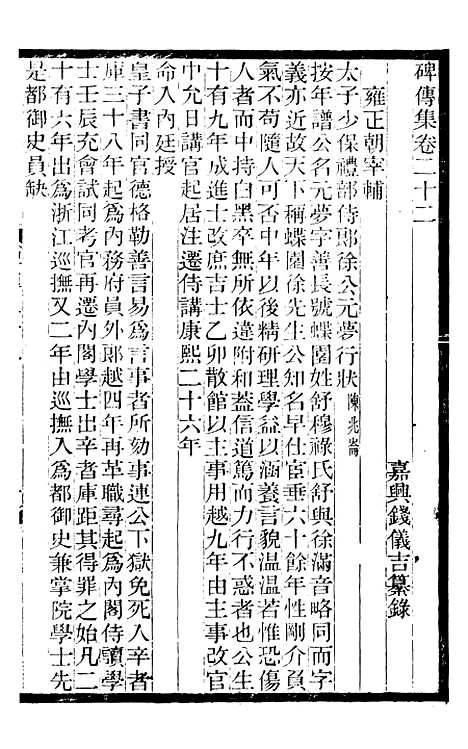 碑傳集卷二十二
嘉興錢儀吉纂錄
雍正朝宰輔
太子少保禮部侍郎徐公元夢行狀 陳兆崙
按年譜公名元夢字善長號蝶園姓舒穆祿氏舒與徐滿音略同而字
義亦近故天下稱蝶園徐先生公知名早仕宦垂六十餘年性剛介負
氣不苟隨人可否中年以後精研理學益以涵養言貌溫溫若惟恐傷
人者而中持白黑卒無所依違附和蓋信道篤而力行不惑者也公二
十有九年成進士改庶吉士乙卯散館以主事用越九年由主事改官
中允日講官起居注遷侍講康熙二十六年
命入內廷授
皇子書同官德格勒善言易為言事者所劾事連公下獄免死入辛者
庫三十八年起為內務府員外郎越四年再革職尋起為內閣侍讀學
士壬辰充會試同考官再遷內閣學士出辛者庫距其得罪之始凡二
十有六年出為浙江巡撫又二年由巡撫入為都御史兼掌院學士先
是都御史員缺